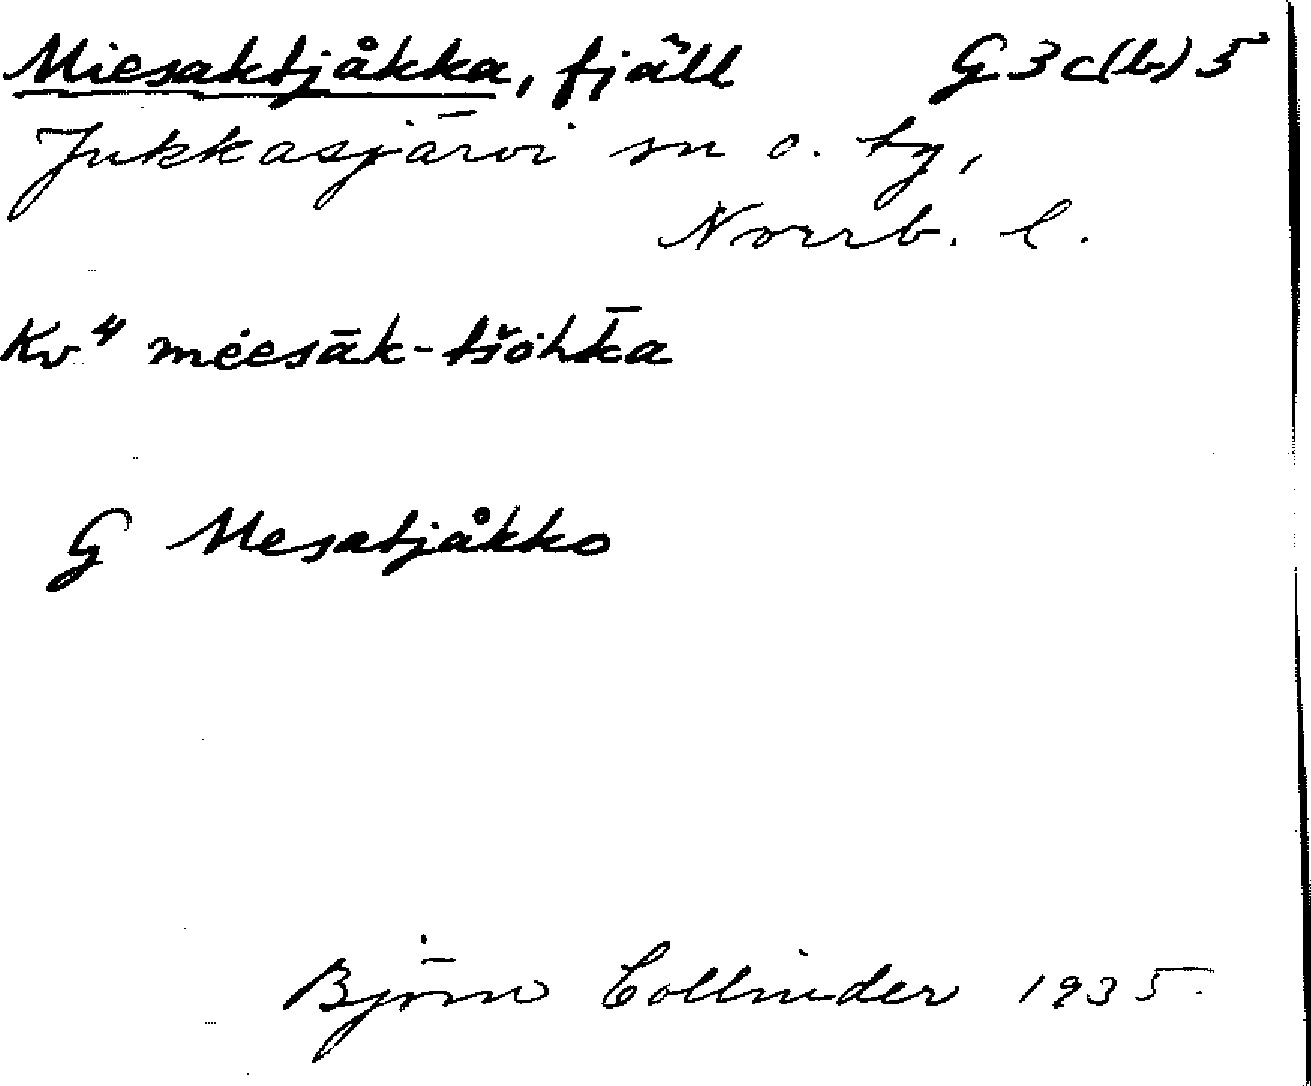 Miesaktjåkka, fjäll G 3 c(b) 5
Jukkasjärvi sn o. tg,
Norrb. l.
Kv⁴ mėesāk-tšȯhk̄a
G Mesatjåkko
Björn Collinder 1935.